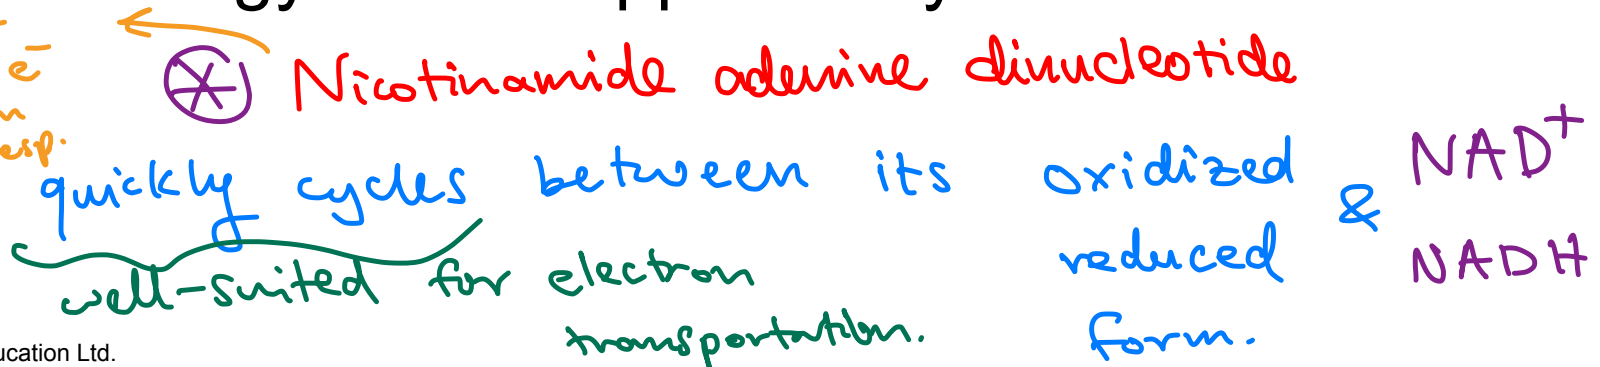 e⁻
Nicotinamide adenine dinucleotide
esp.
quickly cycles between its oxidized & NAD⁺
reduced NADH
well-suited for electron
transportation. form.
ucation Ltd.